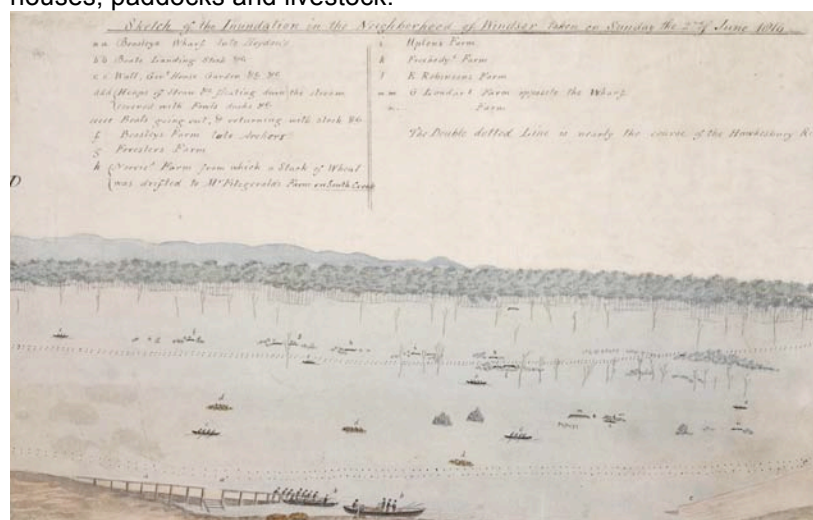 houses, paddocks and livestock.
Sketch of the Inundation in the Neighborhood of Windsor taken on Sunday the 2nd of June 1816
a a (Beasleys Wharf late Hoydon's
b b Boats Landing Stock &c
c c Wall, Govt House Garden &c &c
ddd (Heaps of Straw &c floating down the stream
(covered with Fowls ducks &c
eeee Boats going out, & returning with stock &c
f Beasleys Farm late Archers
g Foresters Farm
h (Norris' Farm from which a Stack of Wheat
(was drifted to Mr Fitzgeralds Farm on South Creek
i Uptons Farm
k Peabodys Farm
l E Robinsons Farm
m m G Loudars Farm opposite the Wharf
n Farm
The Double dotted Line is nearly the course of the Hawkesbury R
D